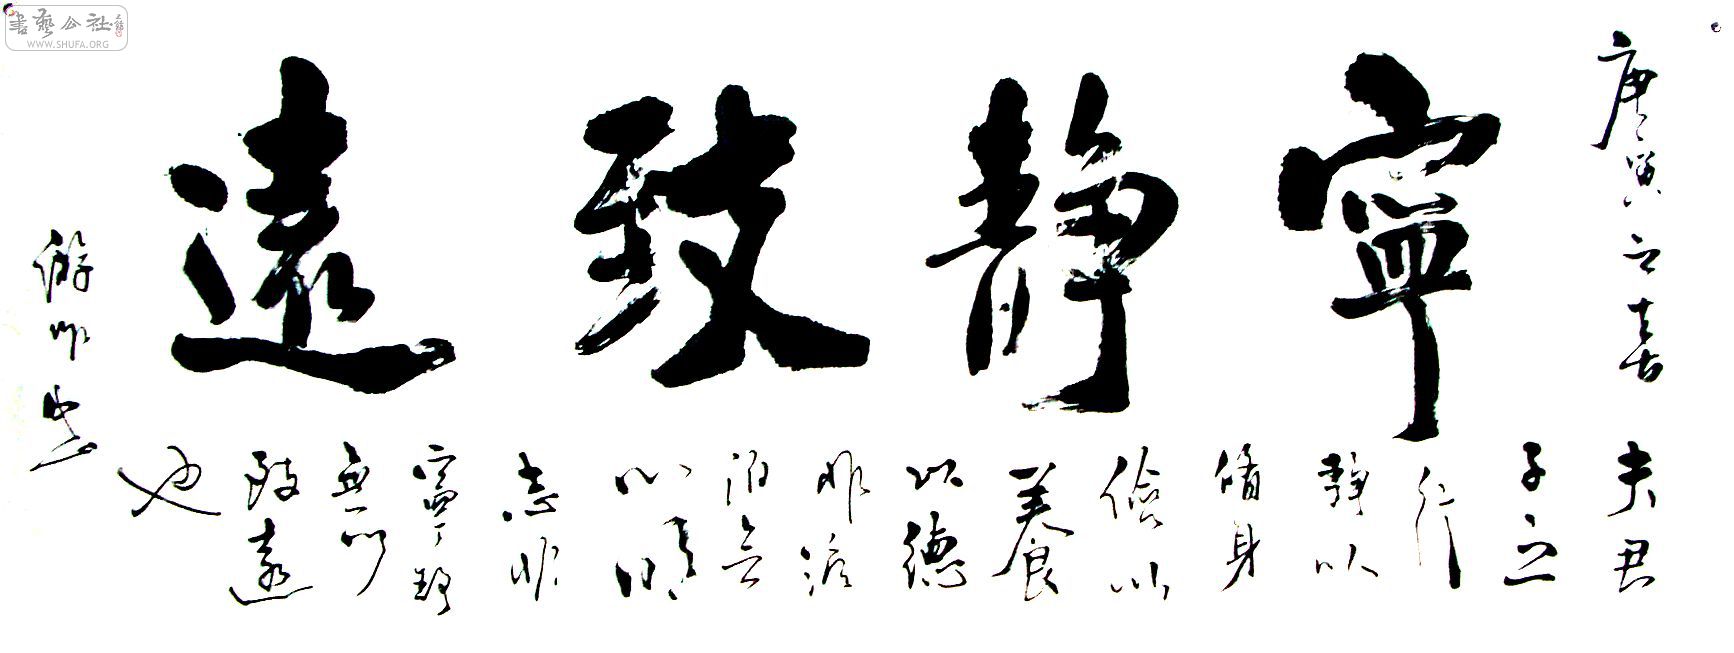 庚寅之春
寧靜致遠
夫君
子之
行
靜以
脩身
儉以
養
以德
非澹
泊無
以明
志非
寧靜
無以
致遠
也
游作書
書藝公社
WWW.SHUFA.ORG